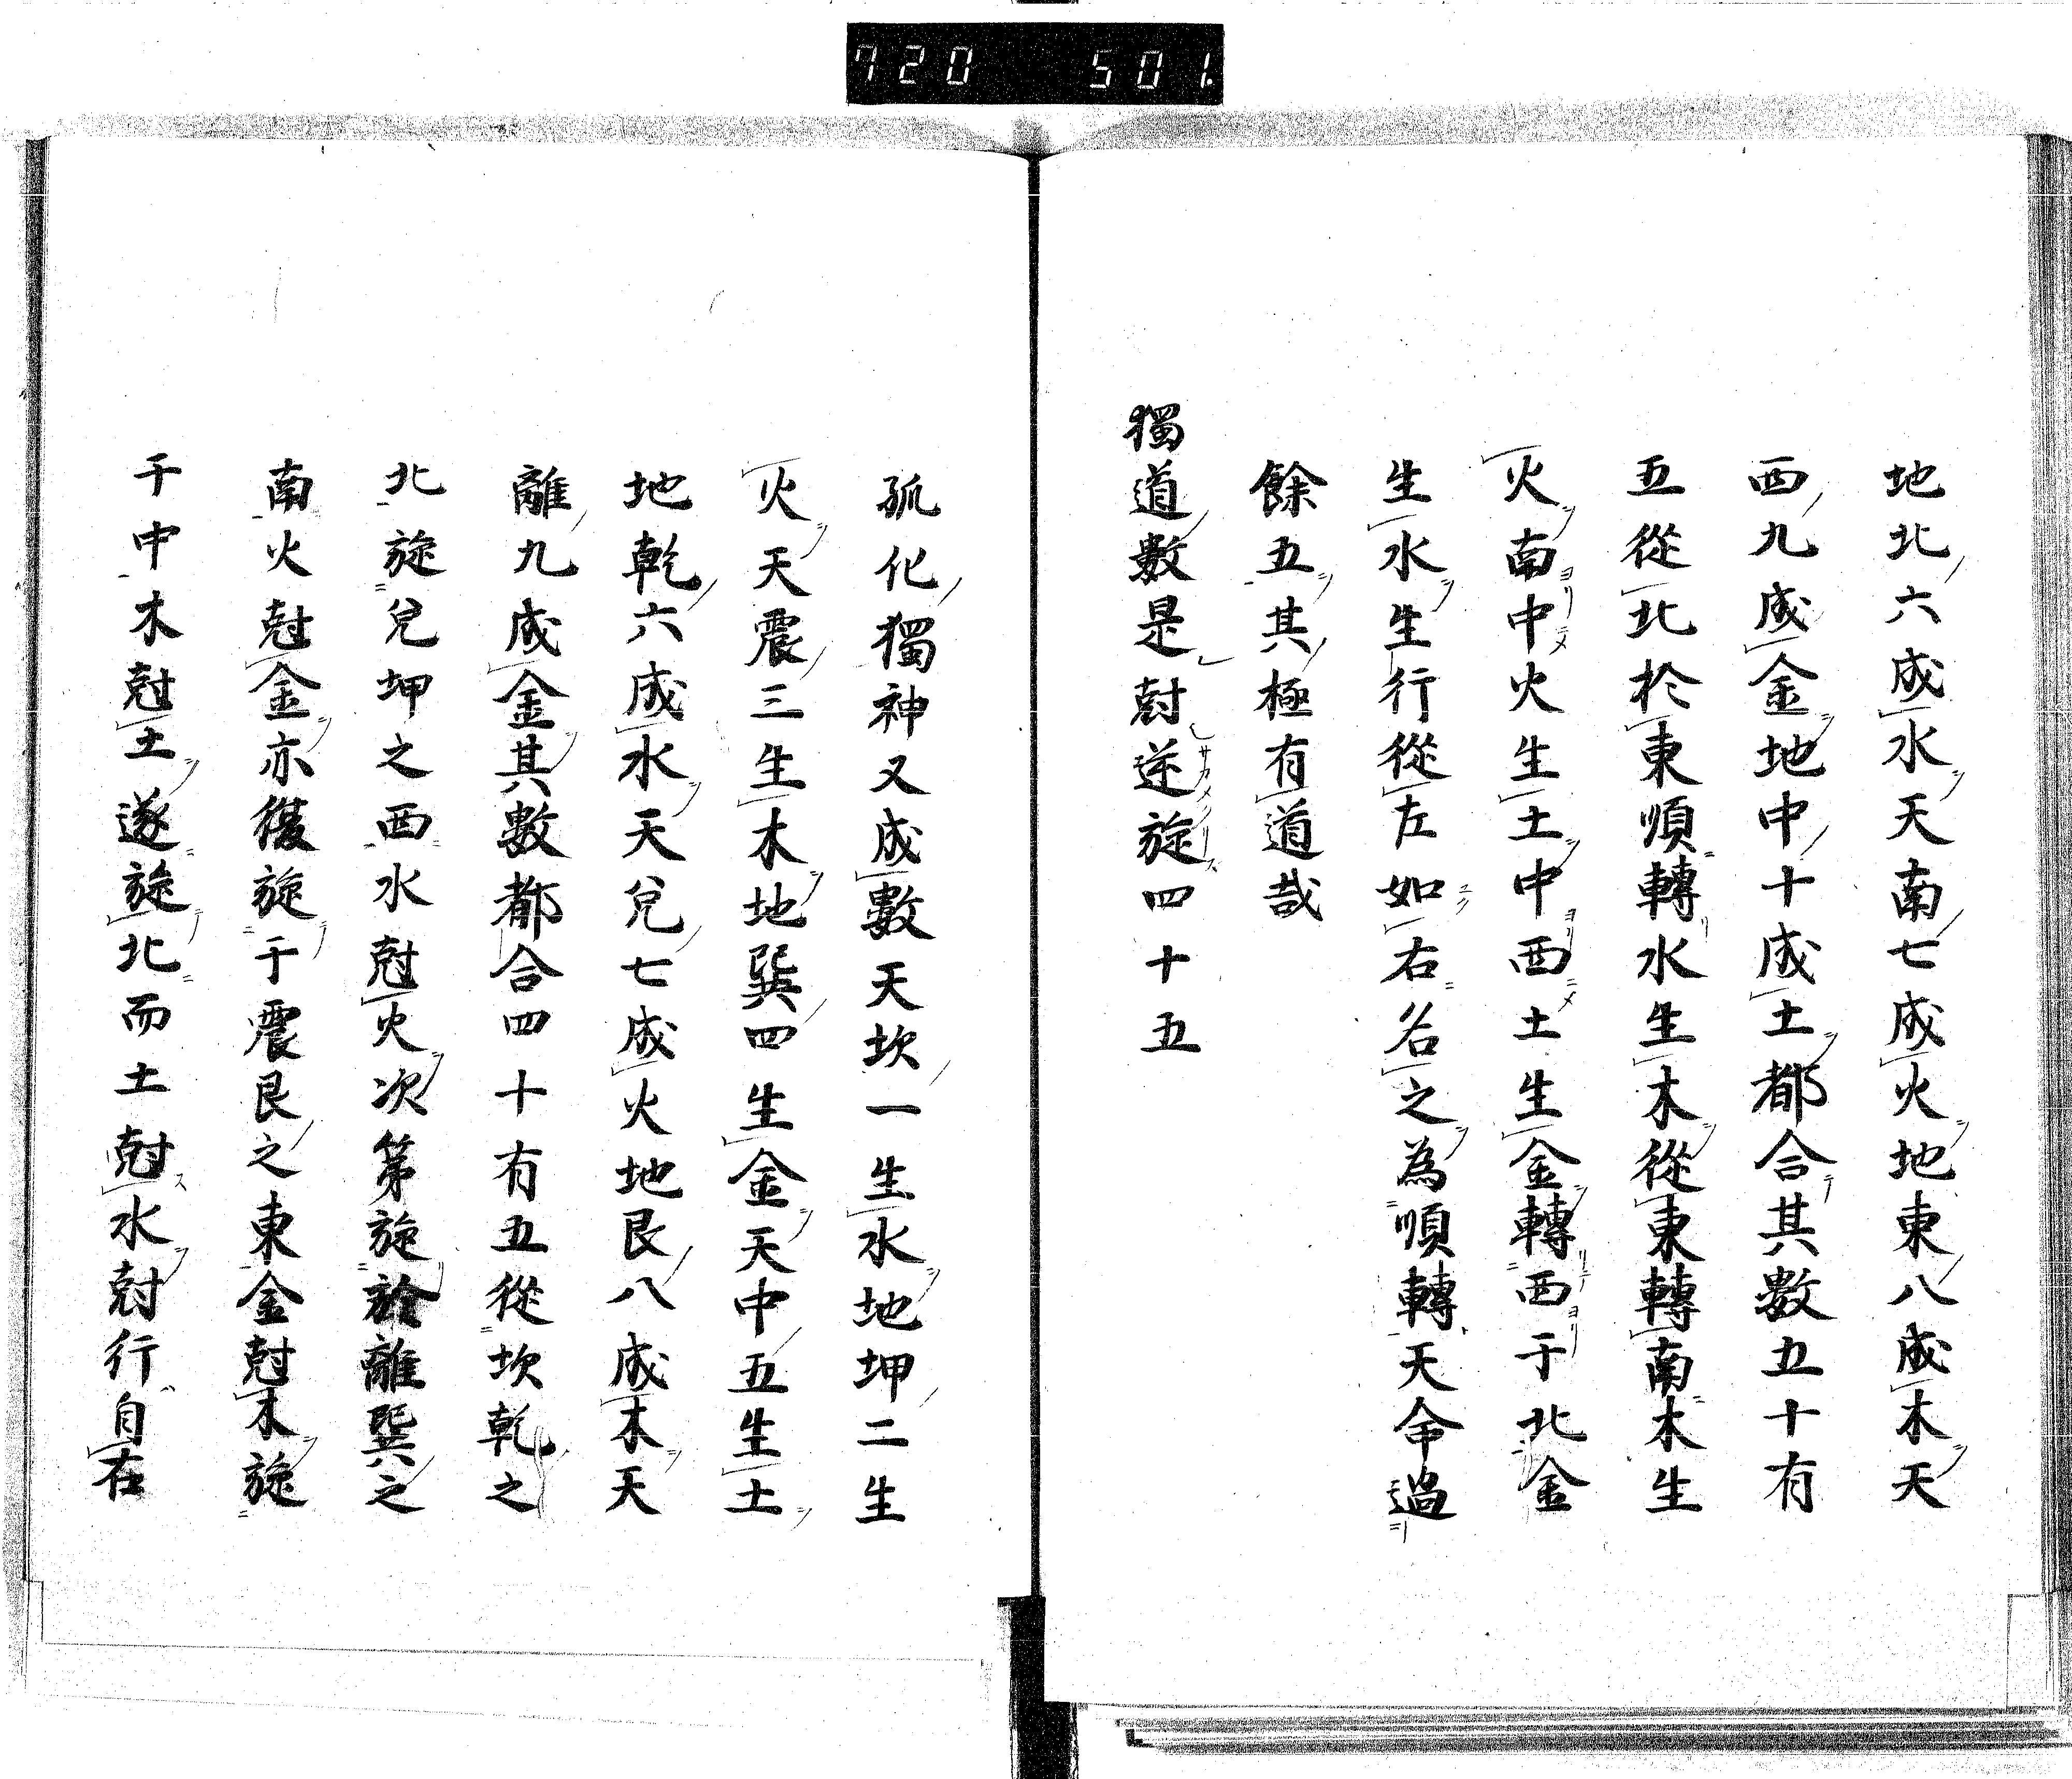 720 501.
地北六成水天南七成火地東八成木天
西九成金地中十成土都合其數五十有
五從北於東順轉水生木從東轉南木生
火南中火生土中西土生金轉西于北金
生水生行從左如右名之為順轉天命過
餘五其極有道哉
獨道數是尅逆旋四十五
孤化獨神又成數天坎一生水地坤二生
火天震三生木地巽四生金天中五生土
地乾六成水天兌七成火地艮八成木天
離九成金其數都合四十有五從坎乾之
北旋兌坤之西水尅火次第旋於離巽之
南火尅金亦復旋于震艮之東金尅木旋
于中木尅土遂旋北而土尅水尅行自右